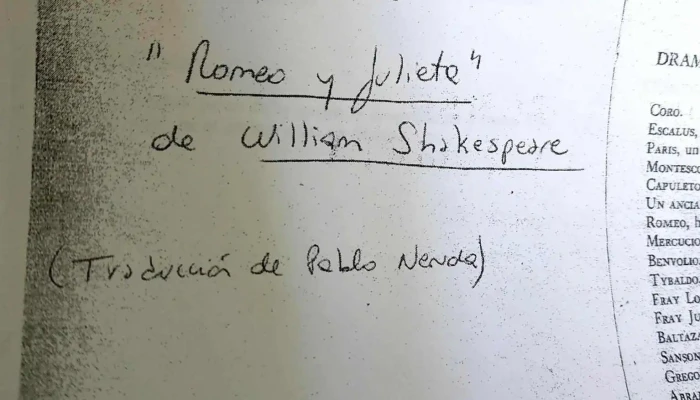 "Romeo y Julieta"
de William Shakespeare
(Traducción de Pablo Neruda)
DRAM
CORO.
ESCALUS,
PARIS, un
MONTESCO
CAPULETO
UN ANCIA
ROMEO, h
MERCUCIO
BENVOLIO
TYBALDO
FRAY LO
FRAY JU
BALTAZA
SANSON
GREGO
ABRA